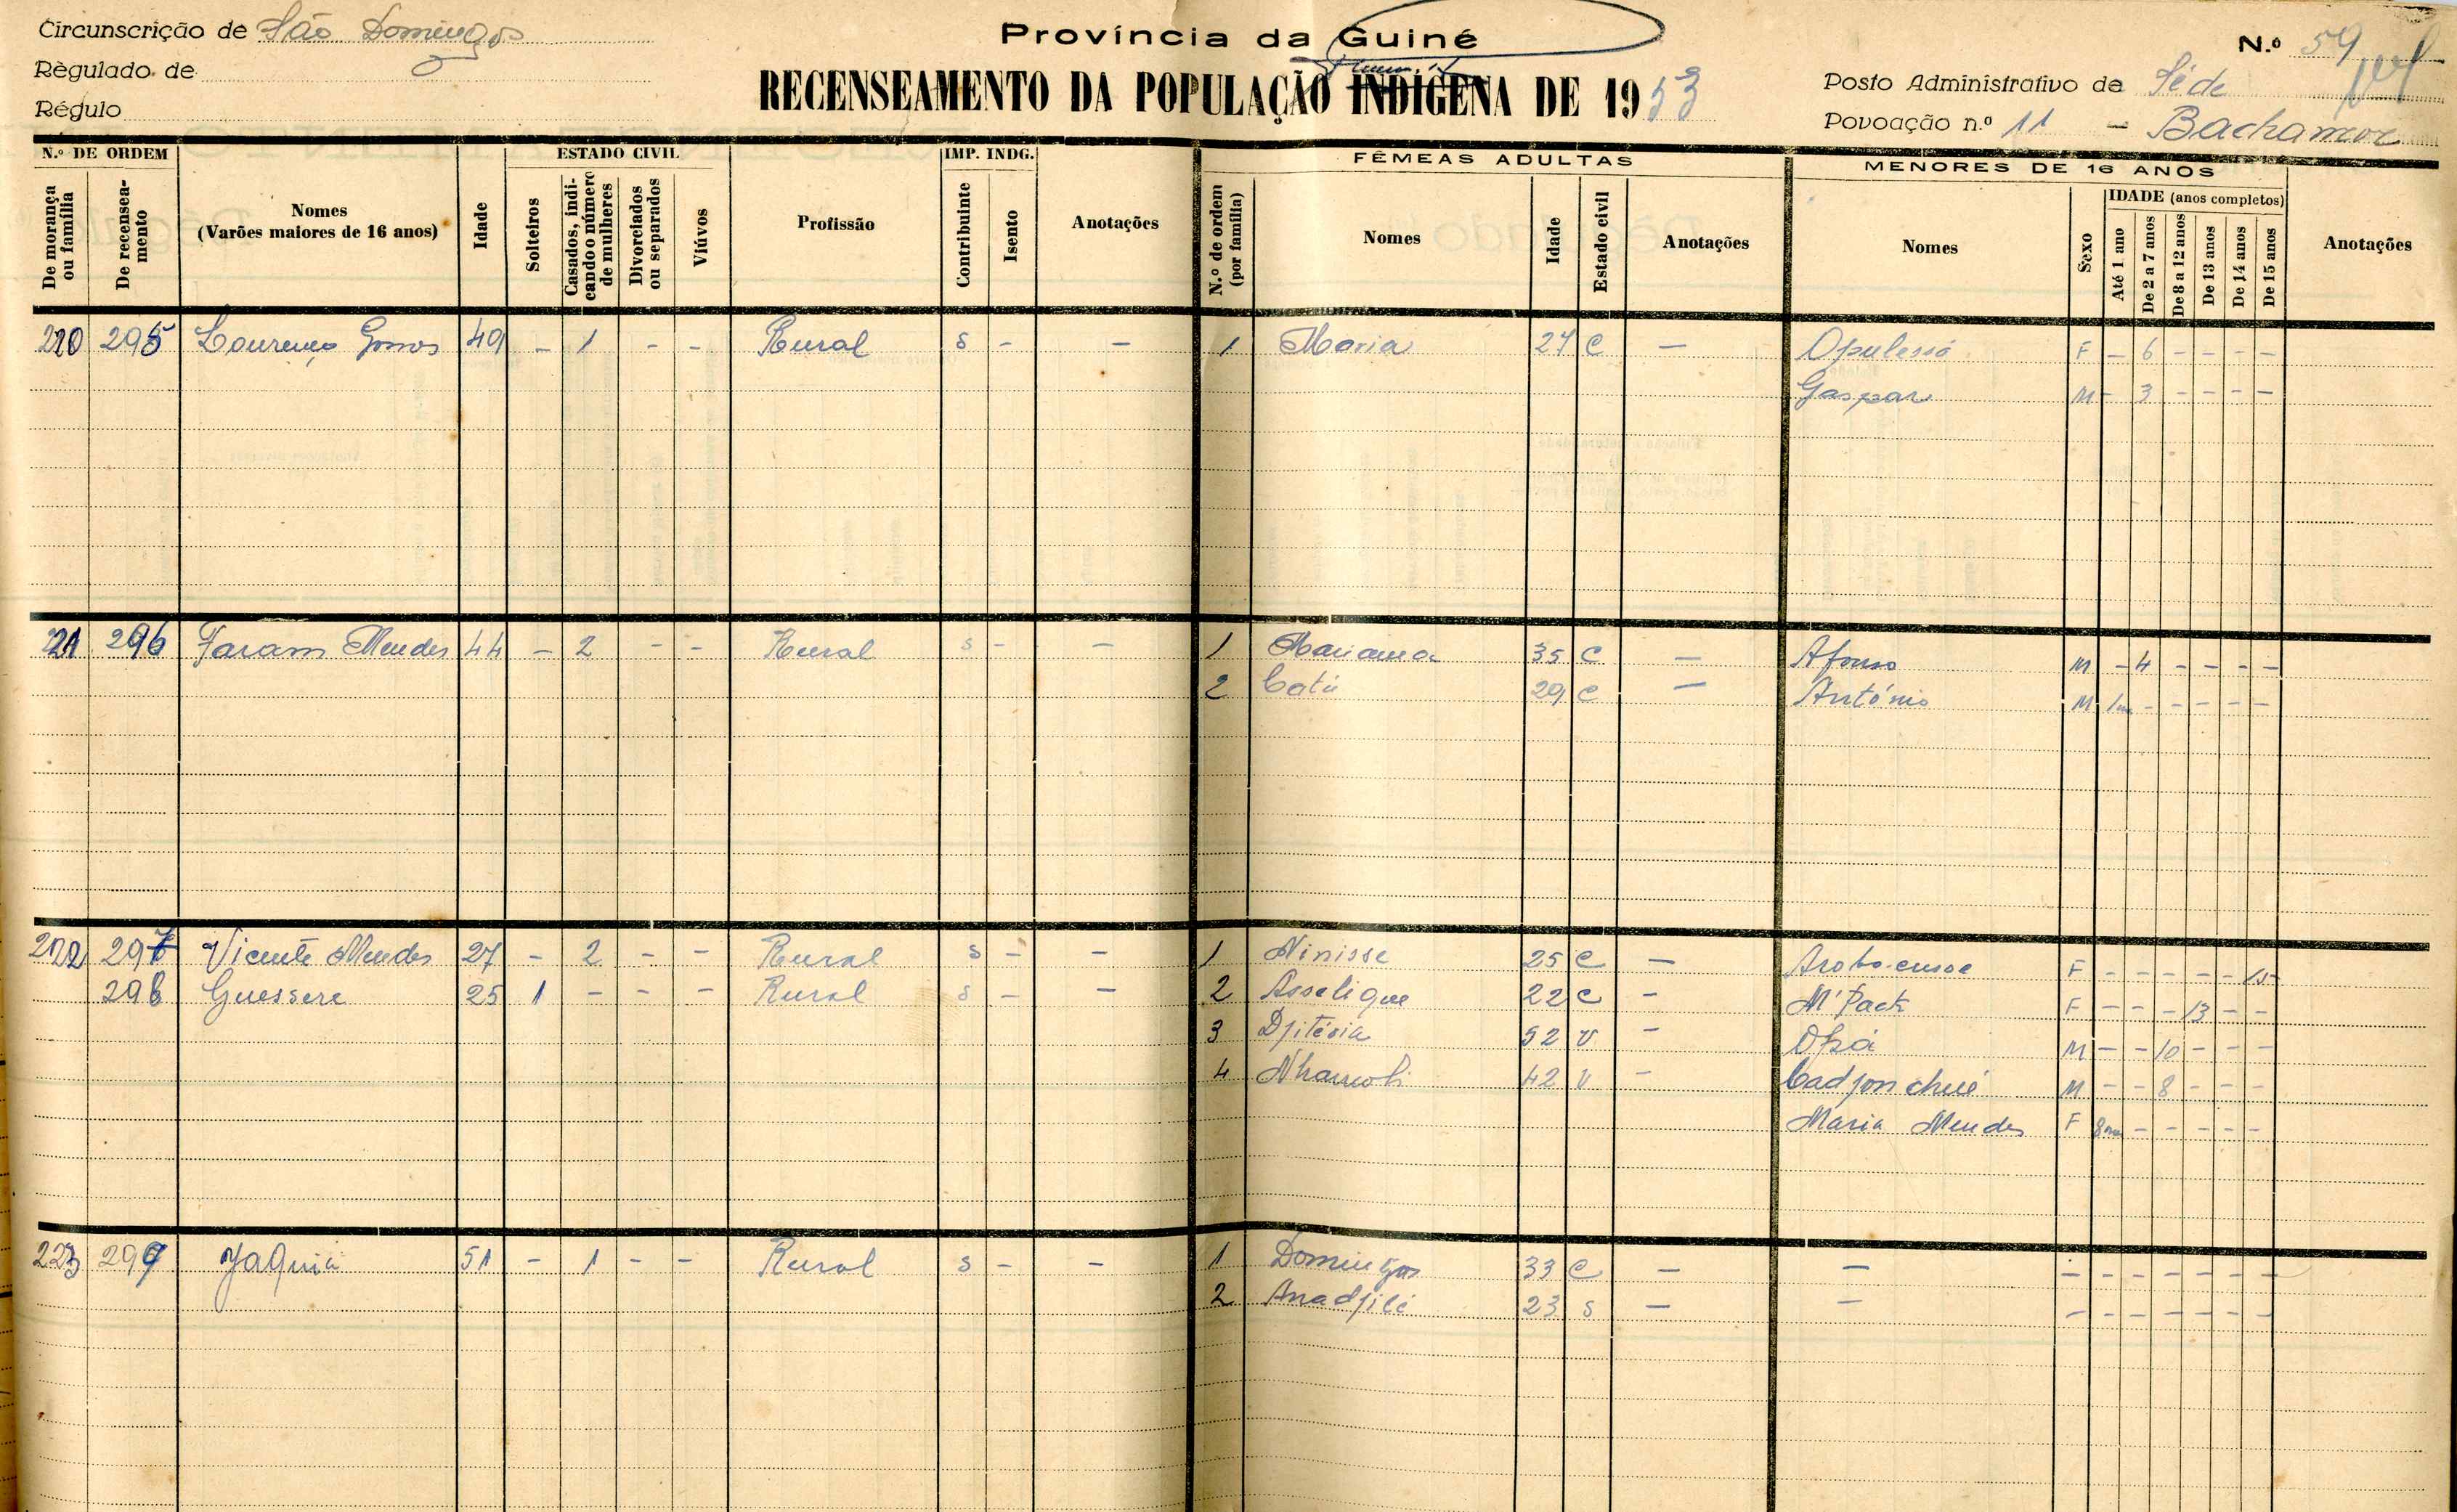 Circunscrição de São Domingos
Règulado de
Régulo
Província da Guiné
RECENSEAMENTO DA POPULAÇÃO INDÍGENA DE 1953
N.º 59
Posto Administrativo de Séde
Povoação n.º 11 - Bachamor
N.º DE ORDEM
De morança ou família
De recenseamento
Nomes
(Varões maiores de 16 anos)
Idade
ESTADO CIVIL
Solteiros
Casados, indicando o número de mulheres
Divorciados ou separados
Viúvos
Profissão
IMP. INDG.
Contribuinte
Isento
Anotações
FÊMEAS ADULTAS
N.º de ordem (por família)
Nomes
Idade
Estado civil
Anotações
MENORES DE 16 ANOS
Nomes
Sexo
IDADE (anos completos)
Até 1 ano
De 2 a 7 anos
De 8 a 12 anos
De 13 anos
De 14 anos
De 15 anos
Anotações
220 295 Lourenço Gomes 49 - 1 - - Rural S - - 1 Maria 27 C - Opulessó F - 6 - - - -
Gaspar M - 3 - - - -
221 296 Faram Mendes 44 - 2 - - Rural S - - 1 Mariama 35 C - Afonso M - 4 - - - -
2 Catú 29 C - António M 1m - - - - -
222 297 Vicente Mendes 27 - 2 - - Rural S - - 1 Ninisse 25 C - F - - - - - 15
298 Guessere 25 1 - - - Rural S - - 2 Asselique 22 C - M'Pack F - - - 13 - -
3 Djitéria 52 V - Opá M - - 10 - - -
4 42 V - Cadjonchué M - - 8 - - -
Maria Mendes F 8m - - - - -
223 299 Jaquiá 51 - 1 - - Rural S - - 1 Domingas 33 C - - - - - - - - -
2 Anadjilé 23 S - - - - - - - - -